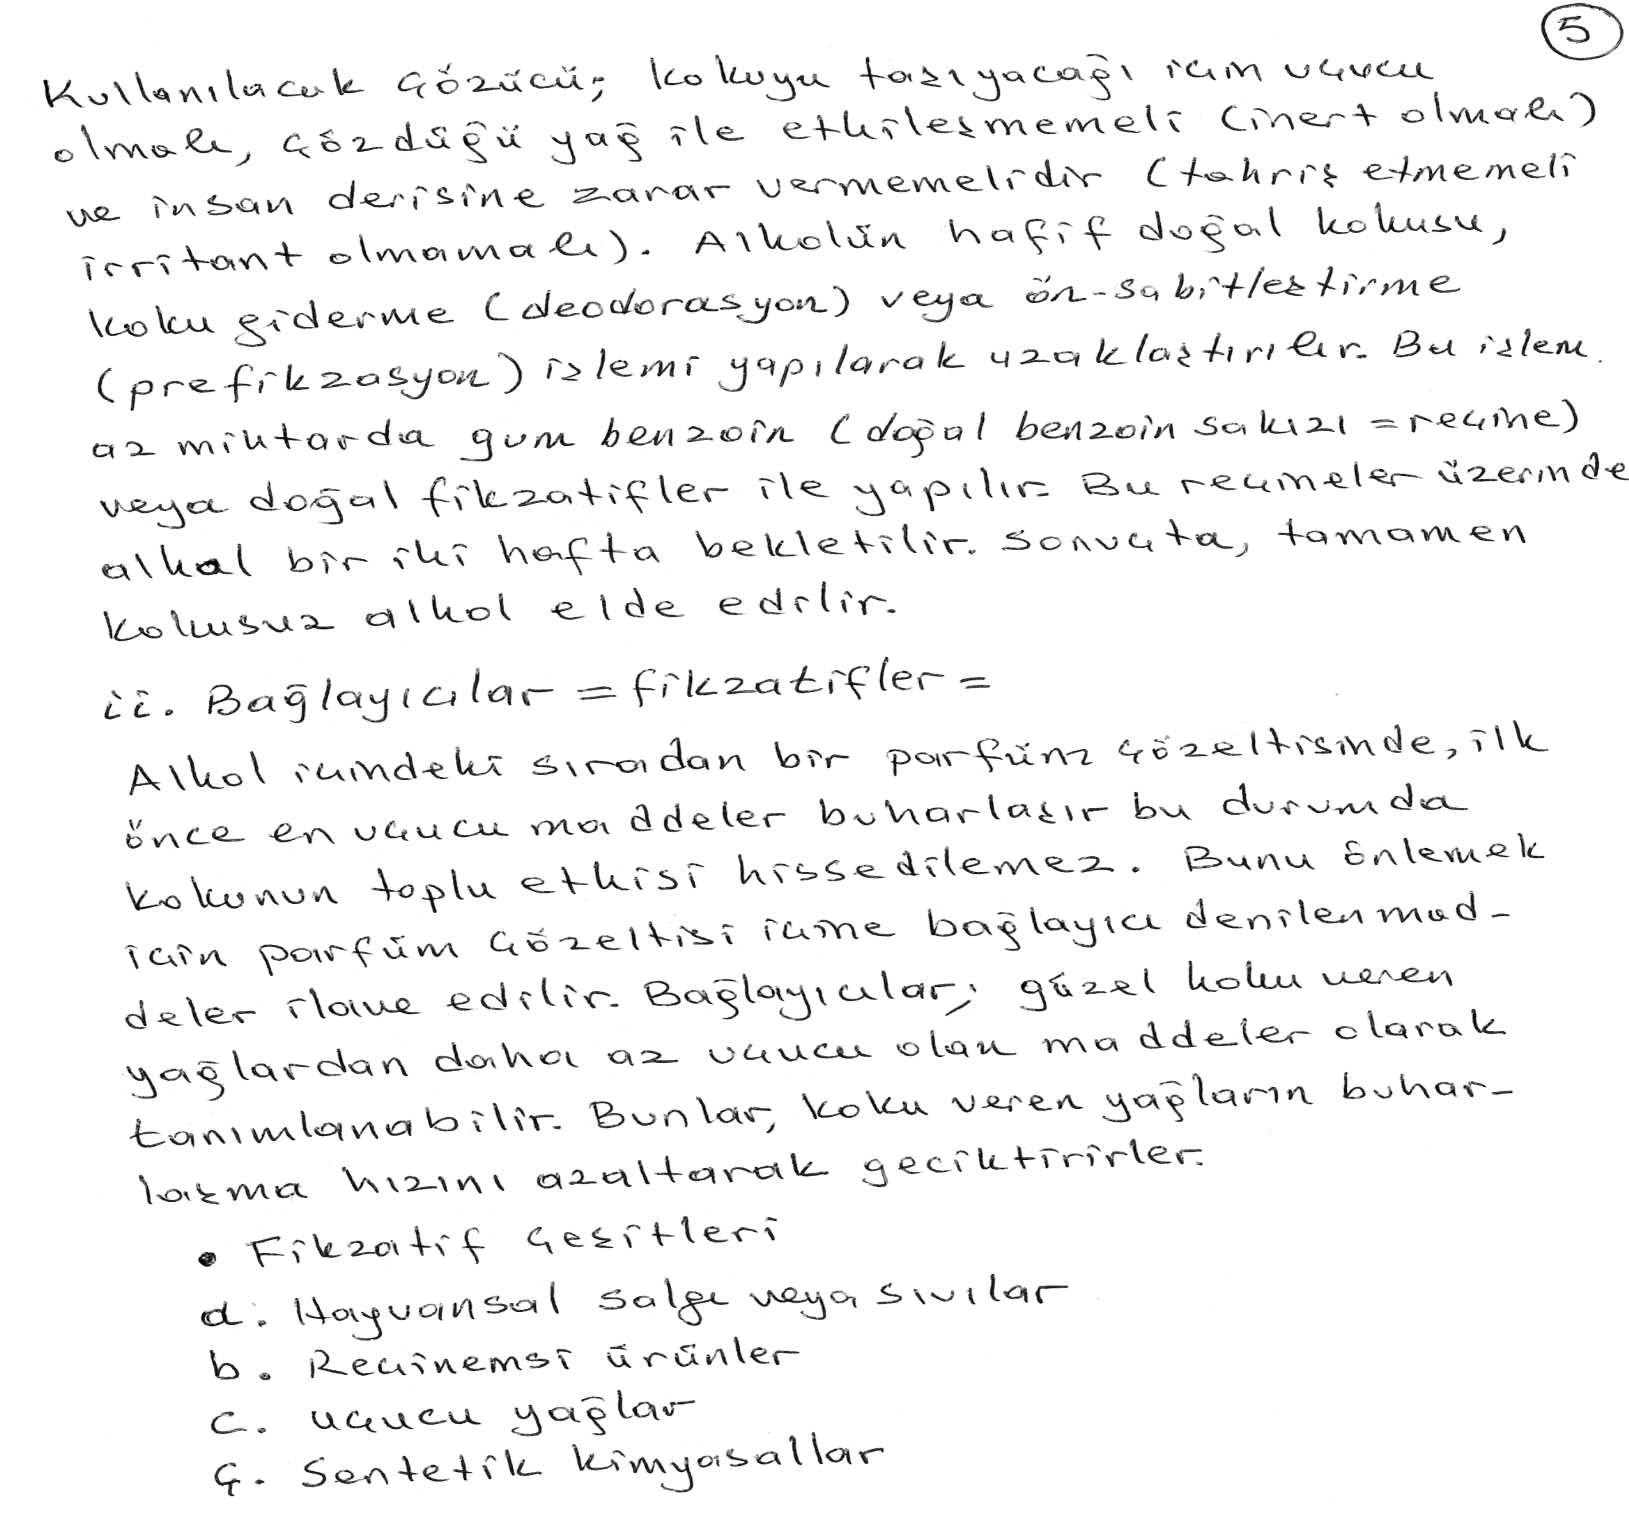 5
Kullanılacak çözücü; kokuyu taşıyacağı için uçucu
olmalı, çözdüğü yağ ile etkileşmemeli (inert olmalı)
ve insan derisine zarar vermemelidir (tahriş etmemeli
irritant olmamalı). Alkolün hafif doğal kokusu,
koku giderme (deodorasyon) veya ön-sabitleştirme
(prefikzasyon) işlemi yapılarak uzaklaştırılır. Bu işlem
az miktarda gum benzoin (doğal benzoin sakızı = reçine)
veya doğal fikzatifler ile yapılır. Bu reçineler üzerinde
alkol bir iki hafta bekletilir. Sonuçta, tamamen
kokusuz alkol elde edilir.
ii. Bağlayıcılar = fikzatifler =
Alkol içindeki sıradan bir parfüm çözeltisinde, ilk
önce en uçucu maddeler buharlaşır bu durumda
kokunun toplu etkisi hissedilemez. Bunu önlemek
için parfüm çözeltisi içine bağlayıcı denilen mad-
deler ilave edilir. Bağlayıcılar; güzel koku veren
yağlardan daha az uçucu olan maddeler olarak
tanımlanabilir. Bunlar, koku veren yağların buhar-
laşma hızını azaltarak geciktirirler.
• Fikzatif Çeşitleri
a. Hayvansal salgı veya sıvılar
b. Reçinemsi ürünler
c. uçucu yağlar
ç. Sentetik kimyasallar